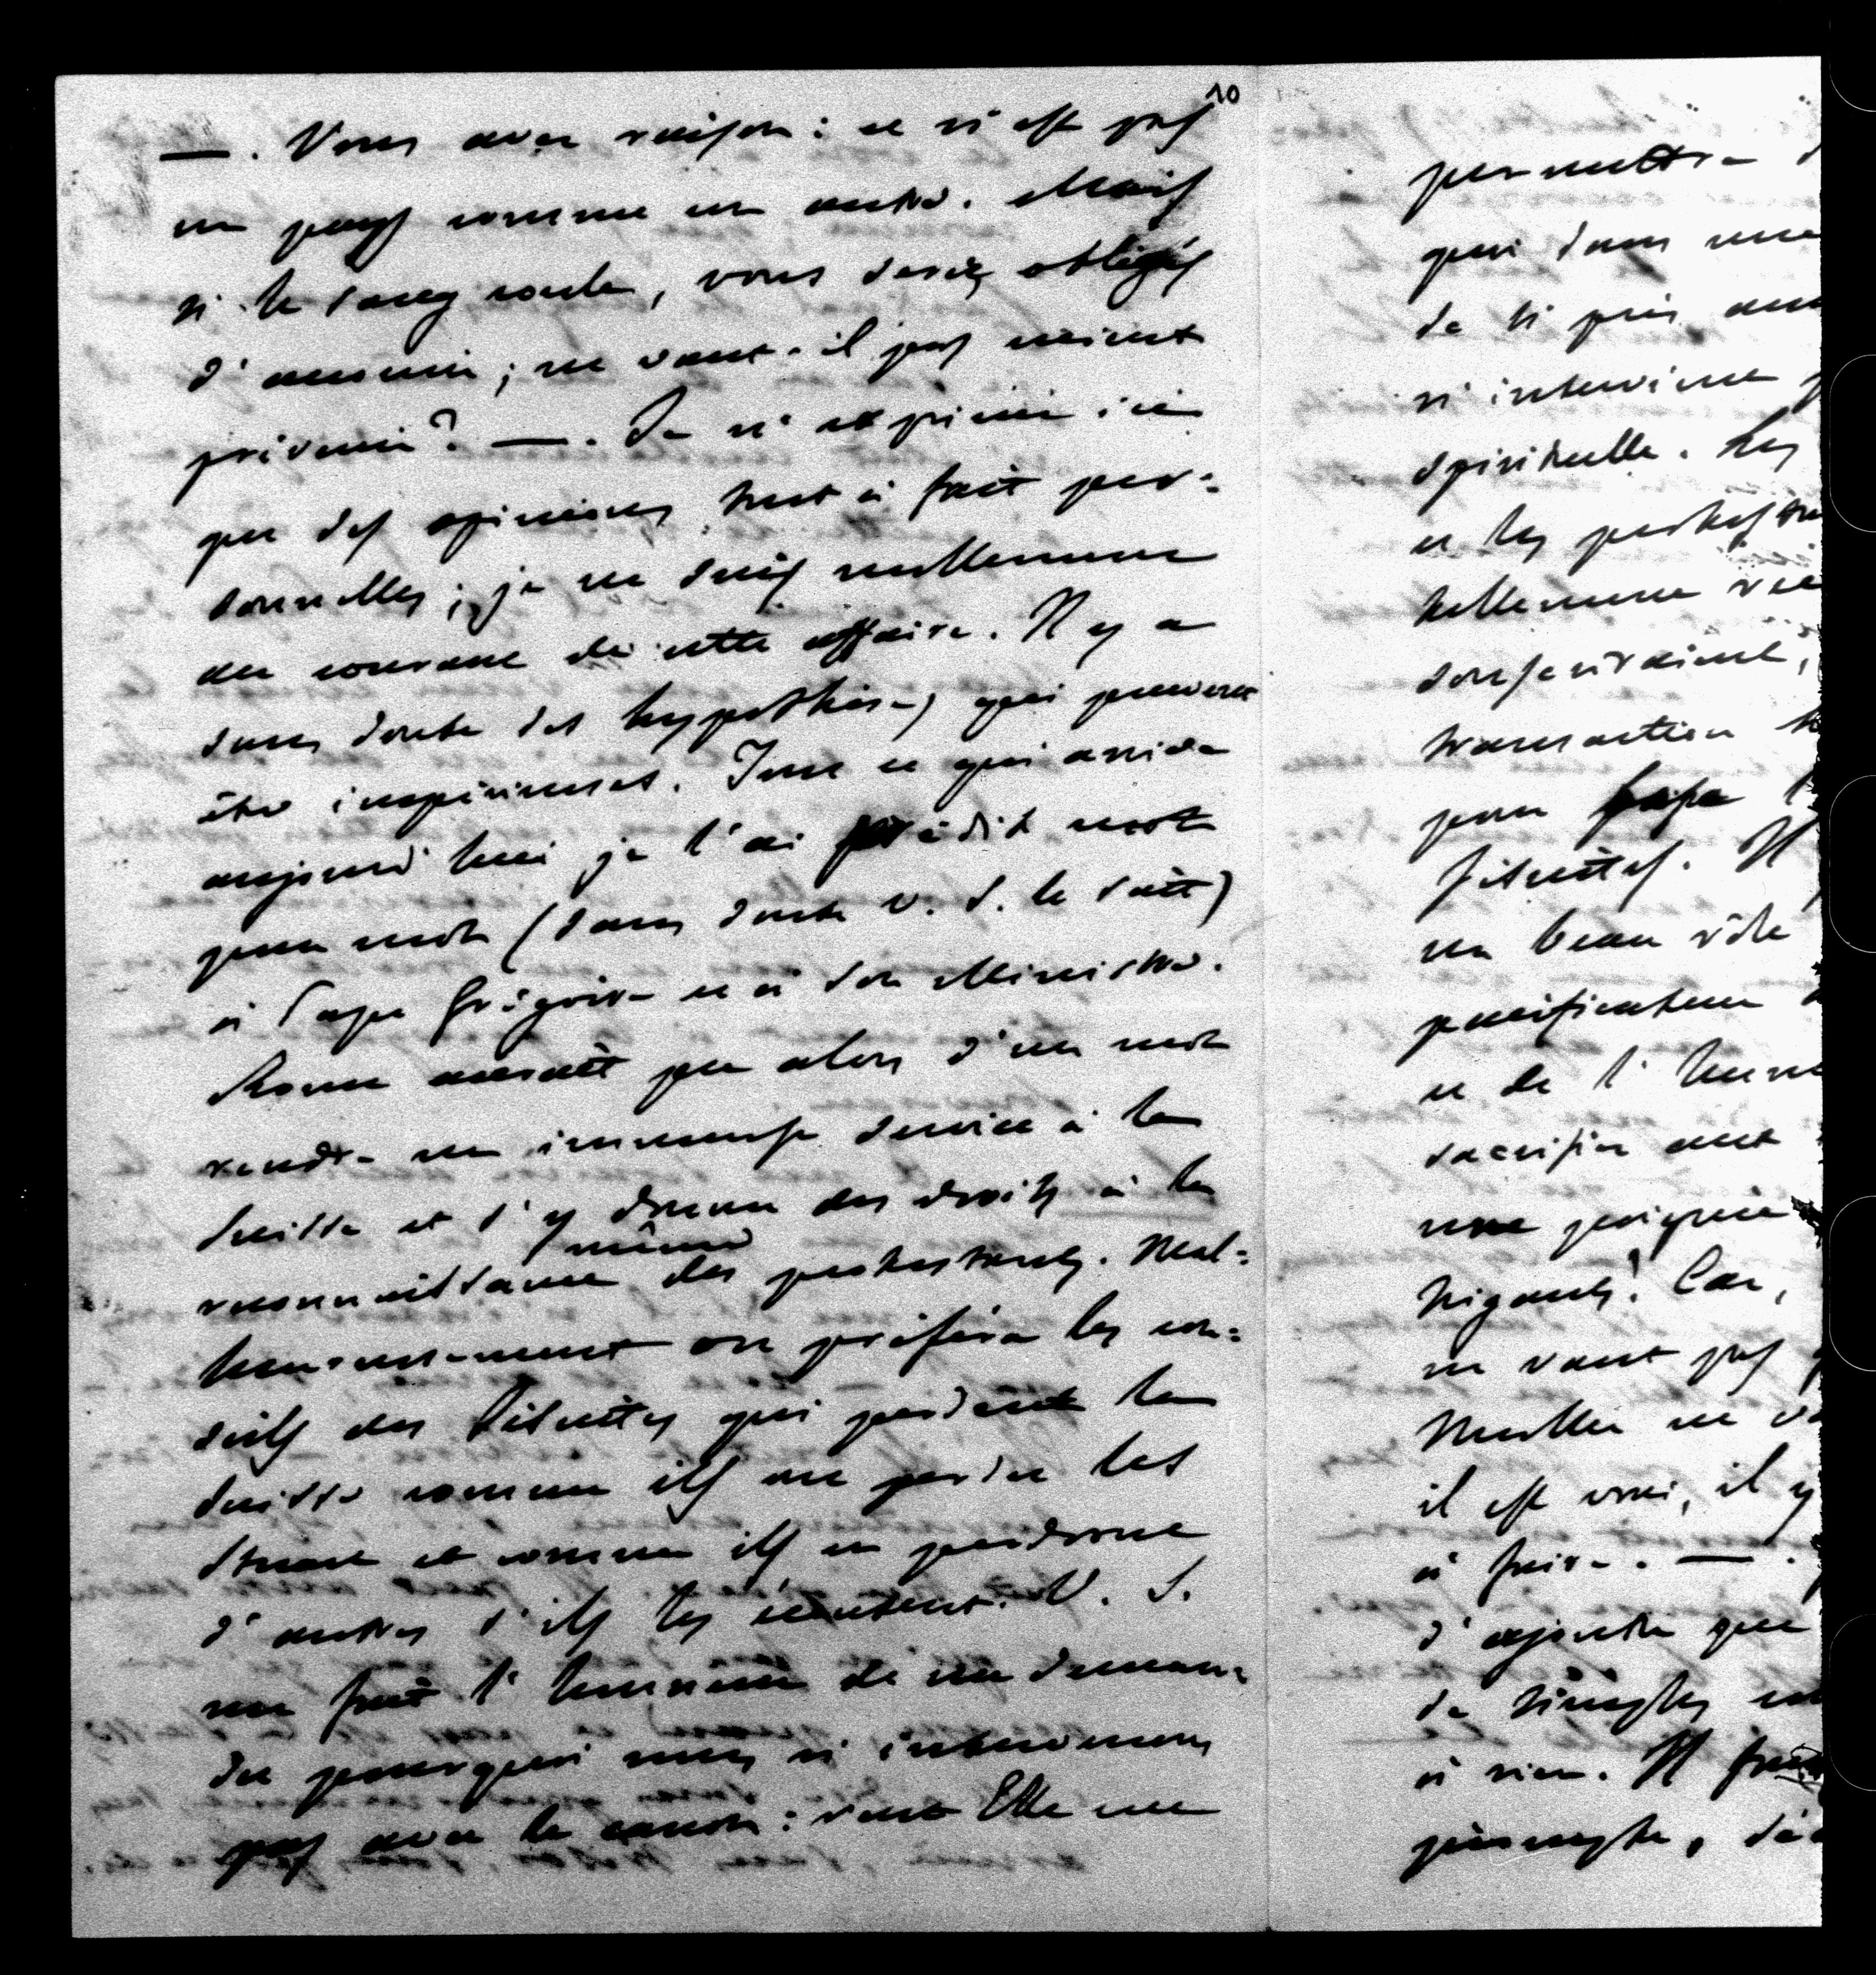 10
—. Vous avez raison: ce n'est pas
un pays comme un autre. Mais
si le sang coule, vous serez obligés
d'accourir; ne vaut-il pas mieux
prévenir? —. Je n'exprime ici
que des opinions tout à fait per=
sonnelles; je ne suis nullement
au courant de cette affaire. Il y a
sans doute des hypothèses qui peuvent
être Tout ce qui arrive
aujourd'hui je l'ai prédit mot
pour mot (sans doute V. S. le sait)
à Pape Grégoire et à son Ministre.
Rome aurait pu alors d'un mot
rendre un immense service à la
Suisse et s'y donner des droits à la
reconnaissance même des protestants. Mal=
heureusement on préféra les con=
seils des Jésuites qui perdent la
Suisse comme ils ont perdu les
Stuart et comme ils en perdront
d'autres s'ils les écoutent. V. S.
me fait l'honneur de me deman=
der pourquoi nous n'intervenons
pas avec le canon: veut Elle me
permettre d
qui dans une
de si près aux
n'intervienne p
spirituelle. Les
et les protestan
tellement
transaction
pour
Jésuites. Il
un beau rôle
pacificateur
et de l'huma
sacrifier aux
une poignée
trigants! Car,
ne vaut pas
Muller ne va
il est vrai, il y
à faire. —.
d'ajouter que
de simples
à rien. Il